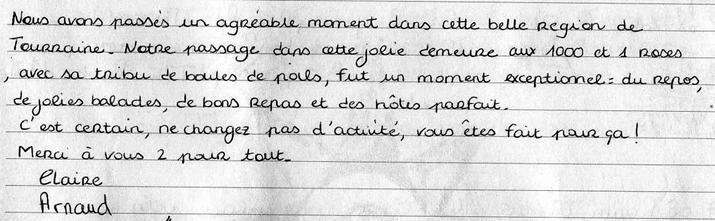 Nous avons passés un agréable moment dans cette belle Region de
Tourraine. Notre passage dans cette jolie demeure aux 1000 et 1 Roses
, avec sa tribu de boules de poils, fut un moment exceptionel : du Repos,
de jolies balades, de bons Repas et des hôtes parfait.
C'est certain, ne changez pas d'activité, vous êtes fait pour ça !
Merci à vous 2 pour tout.
Claire
Arnaud